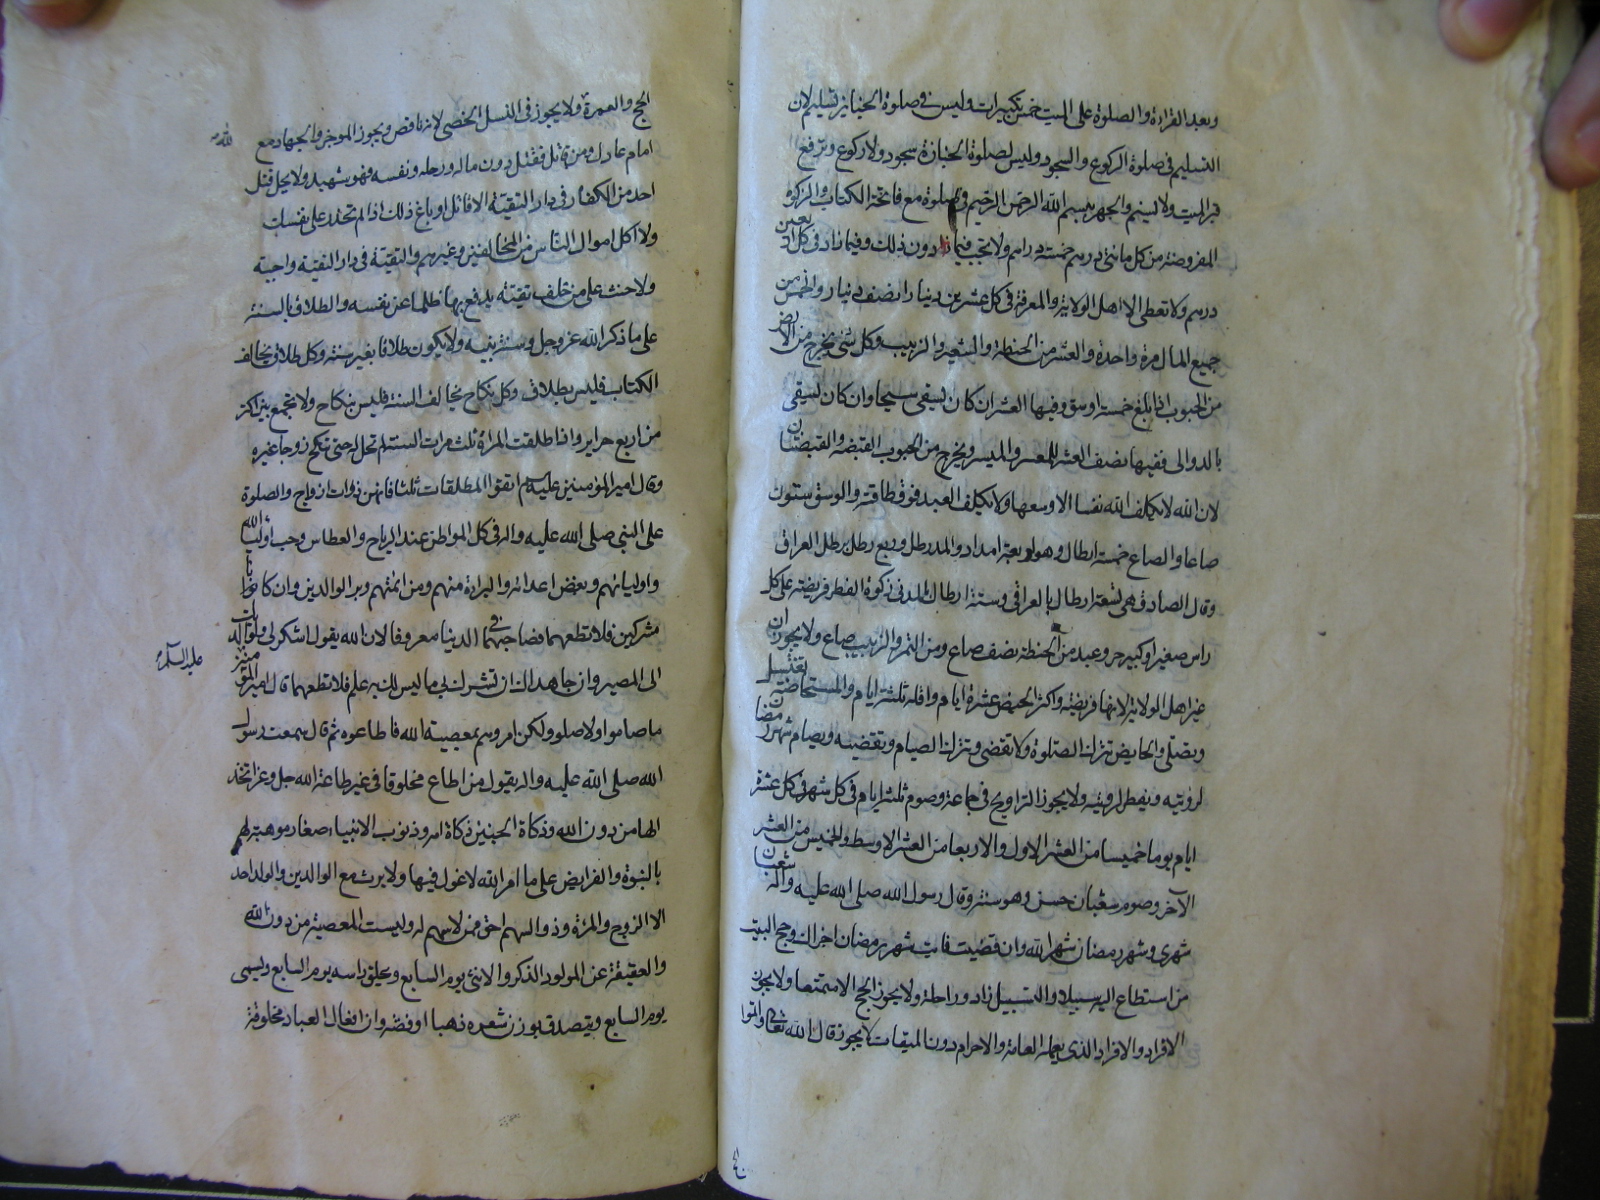 وبعد القراءة والصلوة على الميت خمس تكبيرات وليس في صلوة الجنايز تسليم لان
التسليم في صلوة الركوع والسجود وليس لصلوة الجنازة سجود ولا ركوع وترفع
قبر الميت ولا يسنم والجهر ببسم الله الرحمن الرحيم في الصلوة مع فاتحة الكتاب والزكوة
المفروضة من كل مائتي درهم خمسة دراهم ولا تجب فيما دون ذلك وفيما زاد في كل اربعين
درهم ولا تعطى الا اهل الولاية والمعرفة في كل عشرين دينارا نصف دينار والخمس من
جميع المال مرة واحدة والعشر من الحنطة والشعير والزبيب وكل شئ يخرج من الارض
من الحبوب اذا بلغ خمسة اوسق وفيها العشر ان كان يسقى سيحا وان كان يسقى
بالدوالى ففيها نصف العشر للمعسر والميسر ويخرج من الحبوب القبضة والقبضتان
لان الله لا يكلف الله نفسا الا وسعها ولا يكلف العبد فوق طاقته والوسق ستون
صاعا والصاع خمسة ارطال وهو اربعة امداد والمد رطل وربع رطل برطل العراق
وقال الصادق هى تسعة ارطال بالعراقى وستة ارطال بالمدنى زكوة الفطر فريضة على كل
راس صغير او كبير حر وعبد من الحنطة نصف صاع ومن التمر والزبيب صاع ولا يجوز ان
غير اهل الولاية لانها فريضة واكثر الحيض عشرة ايام واقله ثلثة ايام والمستحاضة تغتسل
وتصلى والحايض تترك الصلوة ولا تقضى وتترك الصيام وتقضيه ويصام شهر رمضان
لرويته ويفطر لرويته ولا يجوز التراويح في جماعة وصوم ثلثة ايام في كل شهر في كل عشرة
ايام يوما خميسا من العشر الاول والاربعا من العشر الاوسط والخميس من العشر
الآخر وصوم شعبان حسن وهو سنة وقال رسول الله صلى الله عليه وآله شعبان
شهرى وشهر رمضان شهر الله وان قضيت فايت شهر رمضان اجزاك وحج البيت
من استطاع اليه سبيلا والسبيل زاد وراحلة ولا يجوز الحج الا متمتعا ولا يجوز
الاقران والافراد الذى يعمله العامة والاحرام دون الميقات لا يجوز قال الله تعالى واتموا
الحج
الحج والعمرة ولا يجوز في النسك الخصى لانه ناقص ويجوز الموجز والجهاد مع
لله
امام عادل ومن قاتل فقتل دون ماله ورحله ونفسه فهو شهيد ولا يحل قتل
احد من الكفار في دار التقية الا قاتل او باغ ذلك اذا لم تحذر على نفسك
ولا اكل اموال الناس من المخالفين وغيرهم والتقية في دار التقية واجبة
ولا حنث على من خلف تقية يدفع بها ظلما عن نفسه والطلاق بالسنة
على ما ذكر الله عز وجل وسنة نبيه ولا يكون طلاقا بغير سنة وكل طلاق يخالف
الكتاب فليس بطلاق وكل نكاح يخالف السنة فليس بنكاح ولا تجمع بين اكثر
من اربع حراير واذا طلقت المراة ثلث مرات السنة لم تحل له حتى تنكح زوجا غيره
وقال امير المؤمنين عليه السلم اتقوا المطلقات ثلثا فانهن ذوات ازواج والصلوة
على النبى صلى الله عليه واله في كل المواطن عند الرياح والعطاس وحب اولياء الله
واوليائهم وبغض اعدائه والبرائة منهم ومن ائمتهم وبر الوالدين وان كانوا
مشركين فلا تطعهما وصاحبهما في الدنيا معروفا لان الله يقول اشكر لى ولوالديك
الى المصير وان جاهداك ان تشرك بى ما ليس لك به علم فلا تطعهما قال امير المؤمنين
عليه السلام
ما صاموا ولا صلوا ولكن امروهم بمعصية الله فاطاعوه ثم قال سمعت رسول
الله صلى الله عليه واله يقول من اطاع مخلوقا في غير طاعة الله جل وعز اتخذ
الها من دون الله وذكاة الجنين ذكاة امه وذنوب الانبياء صغار موهبة لهم
بالنبوة والفرايض على ما امر الله لا عول فيها ولا يرث مع الوالدين والولد احد
الا الزوج والمرئة وذو السهم احق ممن لا سهم له وليست المعصية من دون الله
والعقيقة عن المولود الذكر والانثى يوم السابع ويحلق راسه يوم السابع ويسمى
يوم السابع ويتصدق بوزن شعره ذهبا او فضة وان افعال العباد مخلوقة